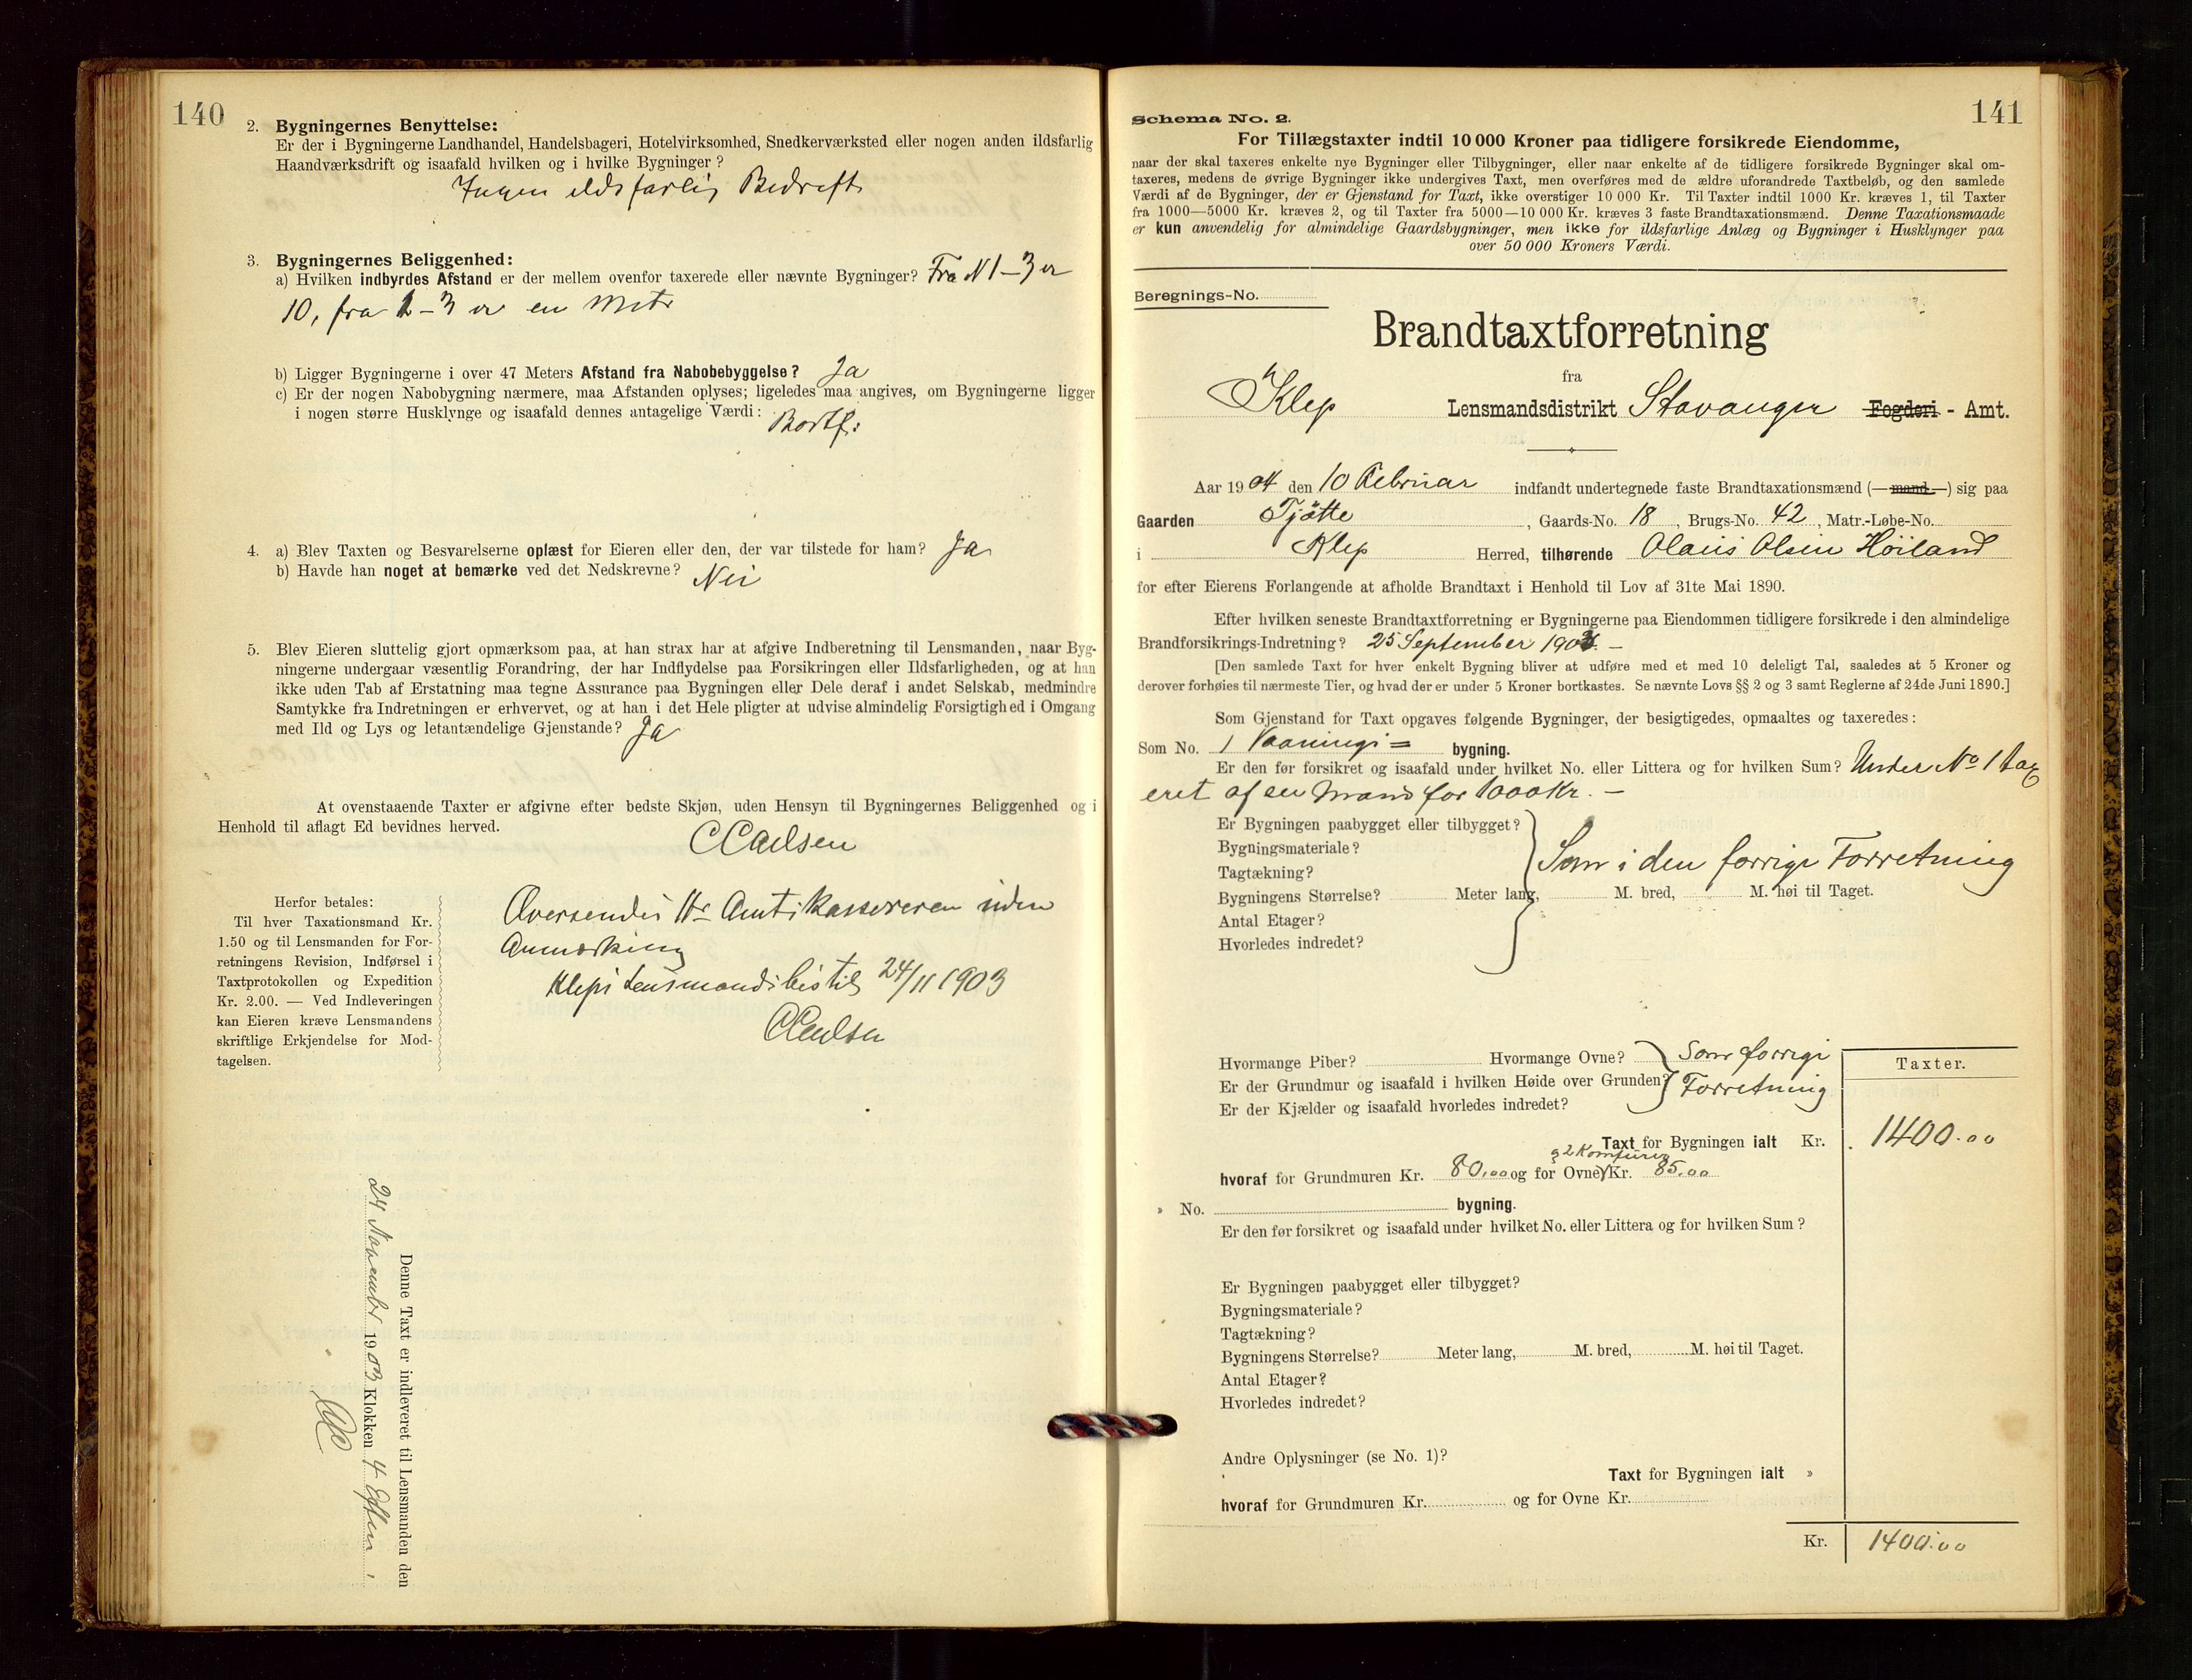 140
2. Bygningernes Benyttelse:
Er der i Bygningerne Landhandel, Handelsbageri, Hotelvirksomhed, Snedkerværksted eller nogen anden ildsfarlig
Haandværksdrift og isaafald hvilken og i hvilke Bygninger?
Ingen ildsfarlig Bedrift
3. Bygningernes Beliggenhed:
a) Hvilken indbyrdes Afstand er der mellem ovenfor taxerede eller nævnte Bygninger? Fra N 1-3 er
10, fra 2-3 er en Metr
b) Ligger Bygningerne i over 47 Meters Afstand fra Nabobebyggelse? Ja
c) Er der nogen Nabobygning nærmere, maa Afstanden oplyses; ligeledes maa angives, om Bygningerne ligger
i nogen større Husklynge og isaafald dennes antagelige Værdi: Bortf:
4. a) Blev Taxten og Besvarelserne oplæst for Eieren eller den, der var tilstede for ham? Ja
b) Havde han noget at bemærke ved det Nedskrevne? Nei
5. Blev Eieren sluttelig gjort opmærksom paa, at han strax har at afgive Indberetning til Lensmanden, naar Byg-
ningerne undergaar væsentlig Forandring, der har Indflydelse paa Forsikringen eller Ildsfarligheden, og at han
ikke uden Tab af Erstatning maa tegne Assurance paa Bygningen eller Dele deraf i andet Selskab, medmindre
Samtykke fra Indretningen er erhvervet, og at han i det Hele pligter at udvise almindelig Forsigtighed i Omgang
med Ild og Lys og letantændelige Gjenstande? Ja
At ovenstaaende Taxter er afgivne efter bedste Skjøn, uden Hensyn til Bygningernes Beliggenhed og i
Henhold til aflagt Ed bevidnes herved.
Herfor betales:
Til hver Taxationsmand Kr.
1.50 og til Lensmanden for For-
retningens Revision, Indførsel i
Taxtprotokollen og Expedition
Kr. 2.00. — Ved Indleveringen
kan Eieren kræve Lensmandens
skriftlige Erkjendelse for Mod-
tagelsen.
Oversendes Hr Amtskassereren uden
Anmærkning
Kleps Lensmandsbestil 24/11 1903
Denne Taxt er indleveret til Lensmanden den
24 November 1903 Klokken 4 Eftm
141
Schema No. 2.
For Tillægstaxter indtil 10 000 Kroner paa tidligere forsikrede Eiendomme,
naar der skal taxeres enkelte nye Bygninger eller Tilbygninger, eller naar enkelte af de tidligere forsikrede Bygninger skal om-
taxeres, medens de øvrige Bygninger ikke undergives Taxt, men overføres med de ældre uforandrede Taxtbeløb, og den samlede
Værdi af de Bygninger, der er Gjenstand for Taxt, ikke overstiger 10 000 Kr. Til Taxter indtil 1000 Kr. kræves 1, til Taxter
fra 1000—5000 Kr. kræves 2, og til Taxter fra 5000—10 000 Kr. kræves 3 faste Brandtaxationsmænd. Denne Taxationsmaade
er kun anvendelig for almindelige Gaardsbygninger, men ikke for ildsfarlige Anlæg og Bygninger i Husklynger paa
over 50 000 Kroners Værdi.
Beregnings-No.
Brandtaxtforretning
fra
Klep Lensmandsdistrikt Stavanger Fogderi - Amt.
Aar 1904 den 10 Februar indfandt undertegnede faste Brandtaxationsmænd (— mand —) sig paa
Gaarden Tjøtte, Gaards-No. 18, Brugs-No. 42, Matr.-Løbe-No.
i Klep Herred, tilhørende Olaus Olsen Höiland
for efter Eierens Forlangende at afholde Brandtaxt i Henhold til Lov af 31te Mai 1890.
Efter hvilken seneste Brandtaxtforretning er Bygningerne paa Eiendommen tidligere forsikrede i den almindelige
Brandforsikrings-Indretning? 25 September 1903. —
[Den samlede Taxt for hver enkelt Bygning bliver at udføre med et med 10 deleligt Tal, saaledes at 5 Kroner og
derover forhøies til nærmeste Tier, og hvad der er under 5 Kroner bortkastes. Se nævnte Lovs §§ 2 og 3 samt Reglerne af 24de Juni 1890.]
Som Gjenstand for Taxt opgaves følgende Bygninger, der besigtigedes, opmaaltes og taxeredes:
Som No. 1 Vaanings= bygning.
Er den før forsikret og isaafald under hvilket No. eller Littera og for hvilken Sum? Under No 1 tax
eret af en Mand for 1000 Kr. —
Er Bygningen paabygget eller tilbygget?
Bygningsmateriale? Som i den forrige Forretning
Tagtækning?
Bygningens Størrelse? Meter lang, M. bred, M. høi til Taget.
Antal Etager?
Hvorledes indredet?
Hvormange Piber? Hvormange Ovne? Som forrige
Er der Grundmur og isaafald i hvilken Høide over Grunden? Forretning
Er der Kjælder og isaafald hvorledes indredet?
Taxter.
Taxt for Bygningen ialt Kr. 1400.00
g 2 Komfurer
hvoraf for Grundmuren Kr. 80,00 og for Ovne Kr. 85.00
» No. bygning.
Er den før forsikret og isaafald under hvilket No. eller Littera og for hvilken Sum?
Er Bygningen paabygget eller tilbygget?
Bygningsmateriale?
Tagtækning?
Bygningens Størrelse? Meter lang, M. bred, M. høi til Taget.
Antal Etager?
Hvorledes indredet?
Andre Oplysninger (se No. 1)?
Taxt for Bygningen ialt »
hvoraf for Grundmuren Kr. og for Ovne Kr.
Kr. 1400.00